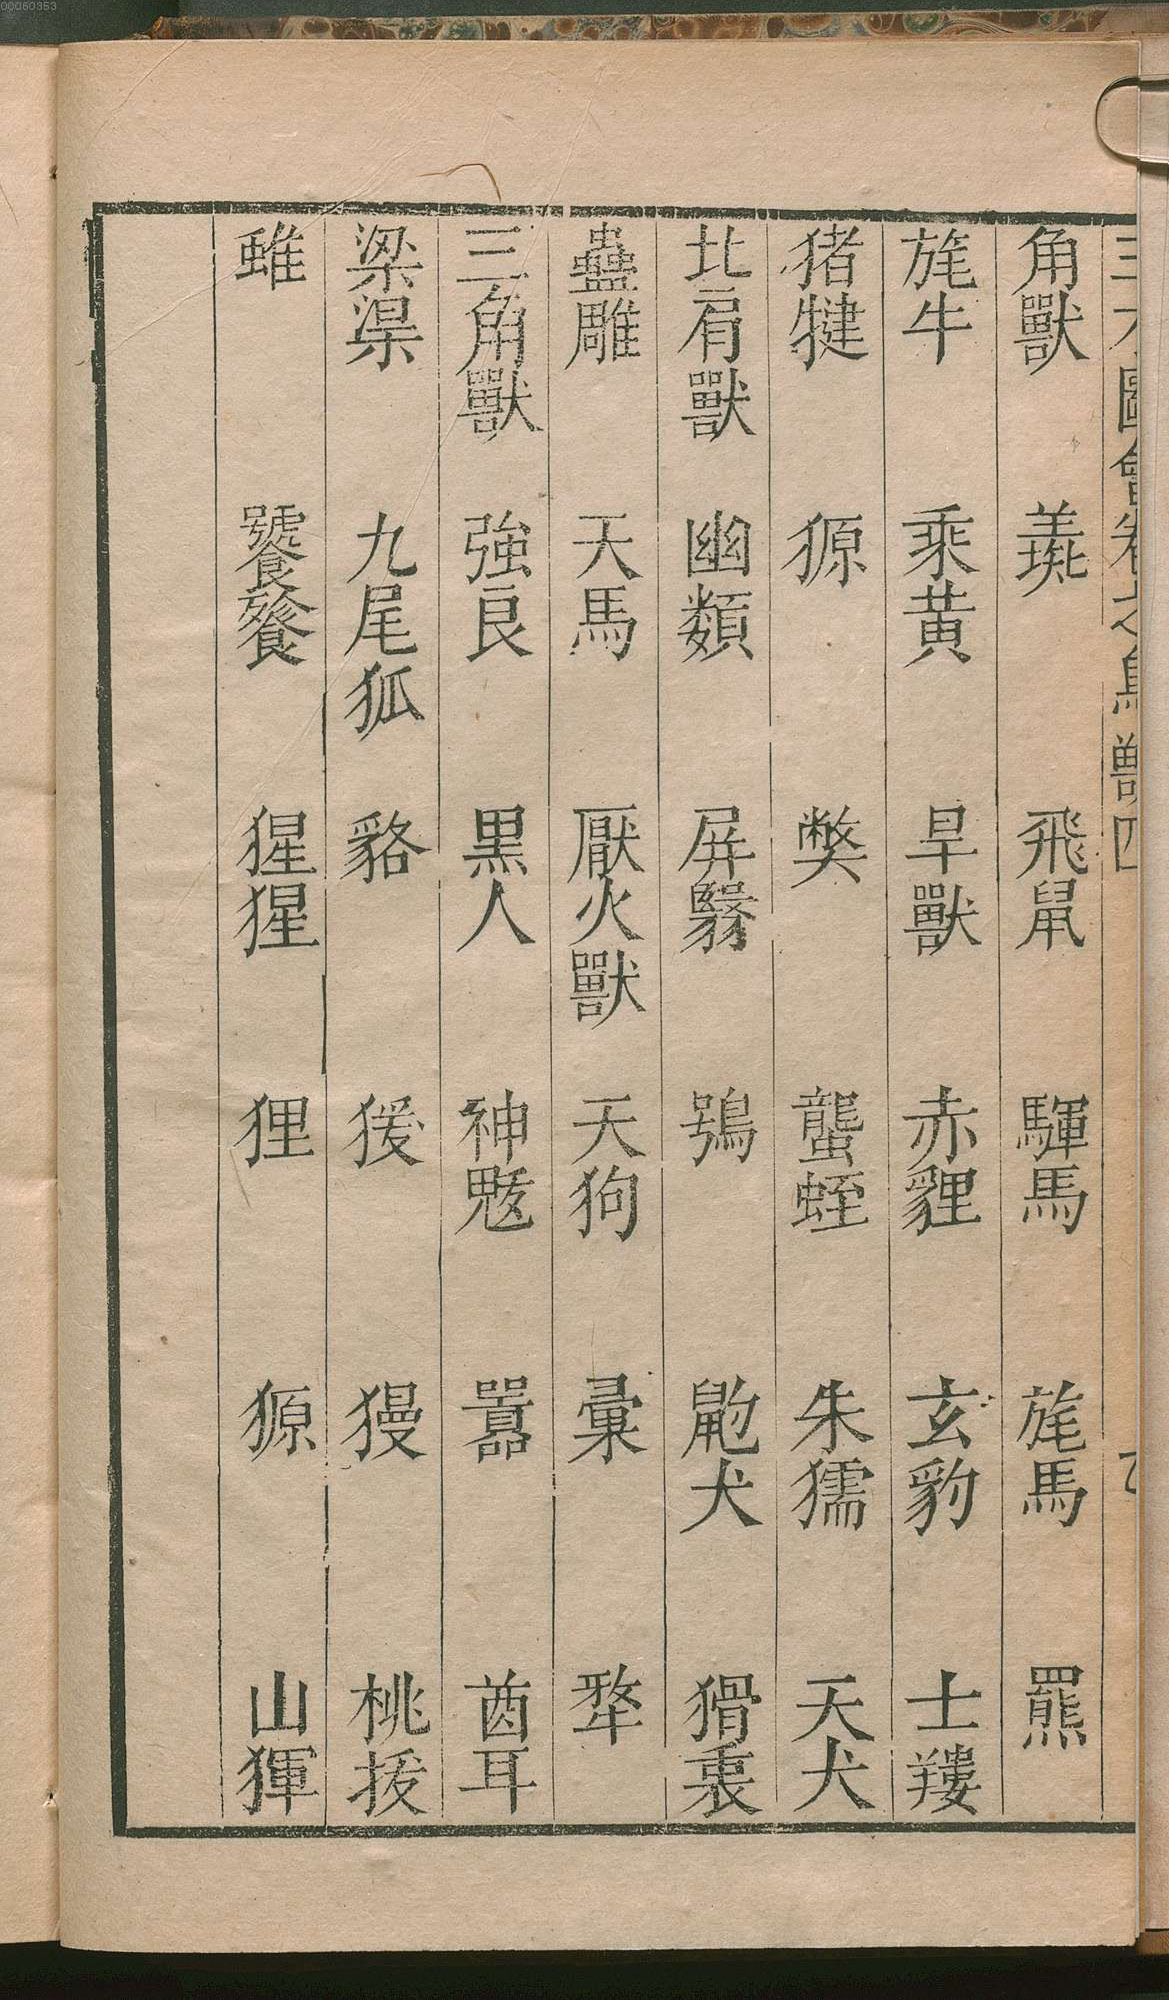 三才圖會卷之鳥獸四
角獸 飛鼠 騨馬 旄馬 羆
旄牛 乘黄 旱獸 赤貍 玄豹 土獀
猪犍 獂 獘 蠪蛭 朱獳 天犬
北肩獸 幽頞 屏翳 鴞 鼩犬 猾褢
蠱雕 天馬 厭火獸 天狗 彙 犂
三角獸 強良 黒人 神魃 囂 酋耳
梁渠 九尾狐 貉 猨 獌 桃拔
蜼 饕餮 猩猩 狸 獂 山㺔
00060353